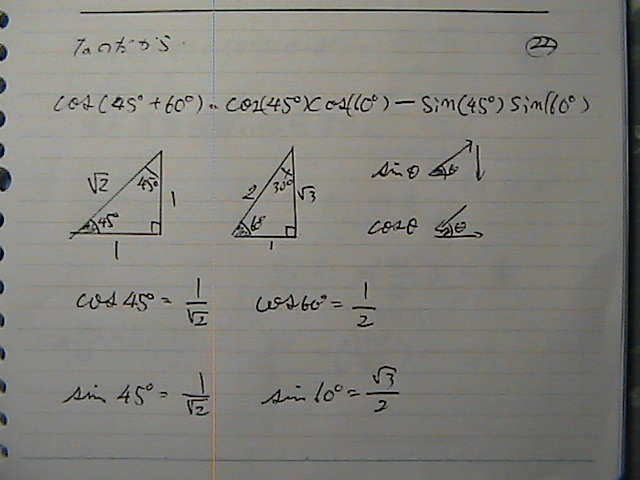 ㉒
cos(45°+60°) = cos(45°)cos(60°) − sin(45°)sin(60°)
√2 45° 1 45° 1
2 30° √3 60° 1
sinθ θ
cosθ θ
cos45° = 1/√2 cos60° = 1/2
sin 45° = 1/√2 sin 60° = √3/2